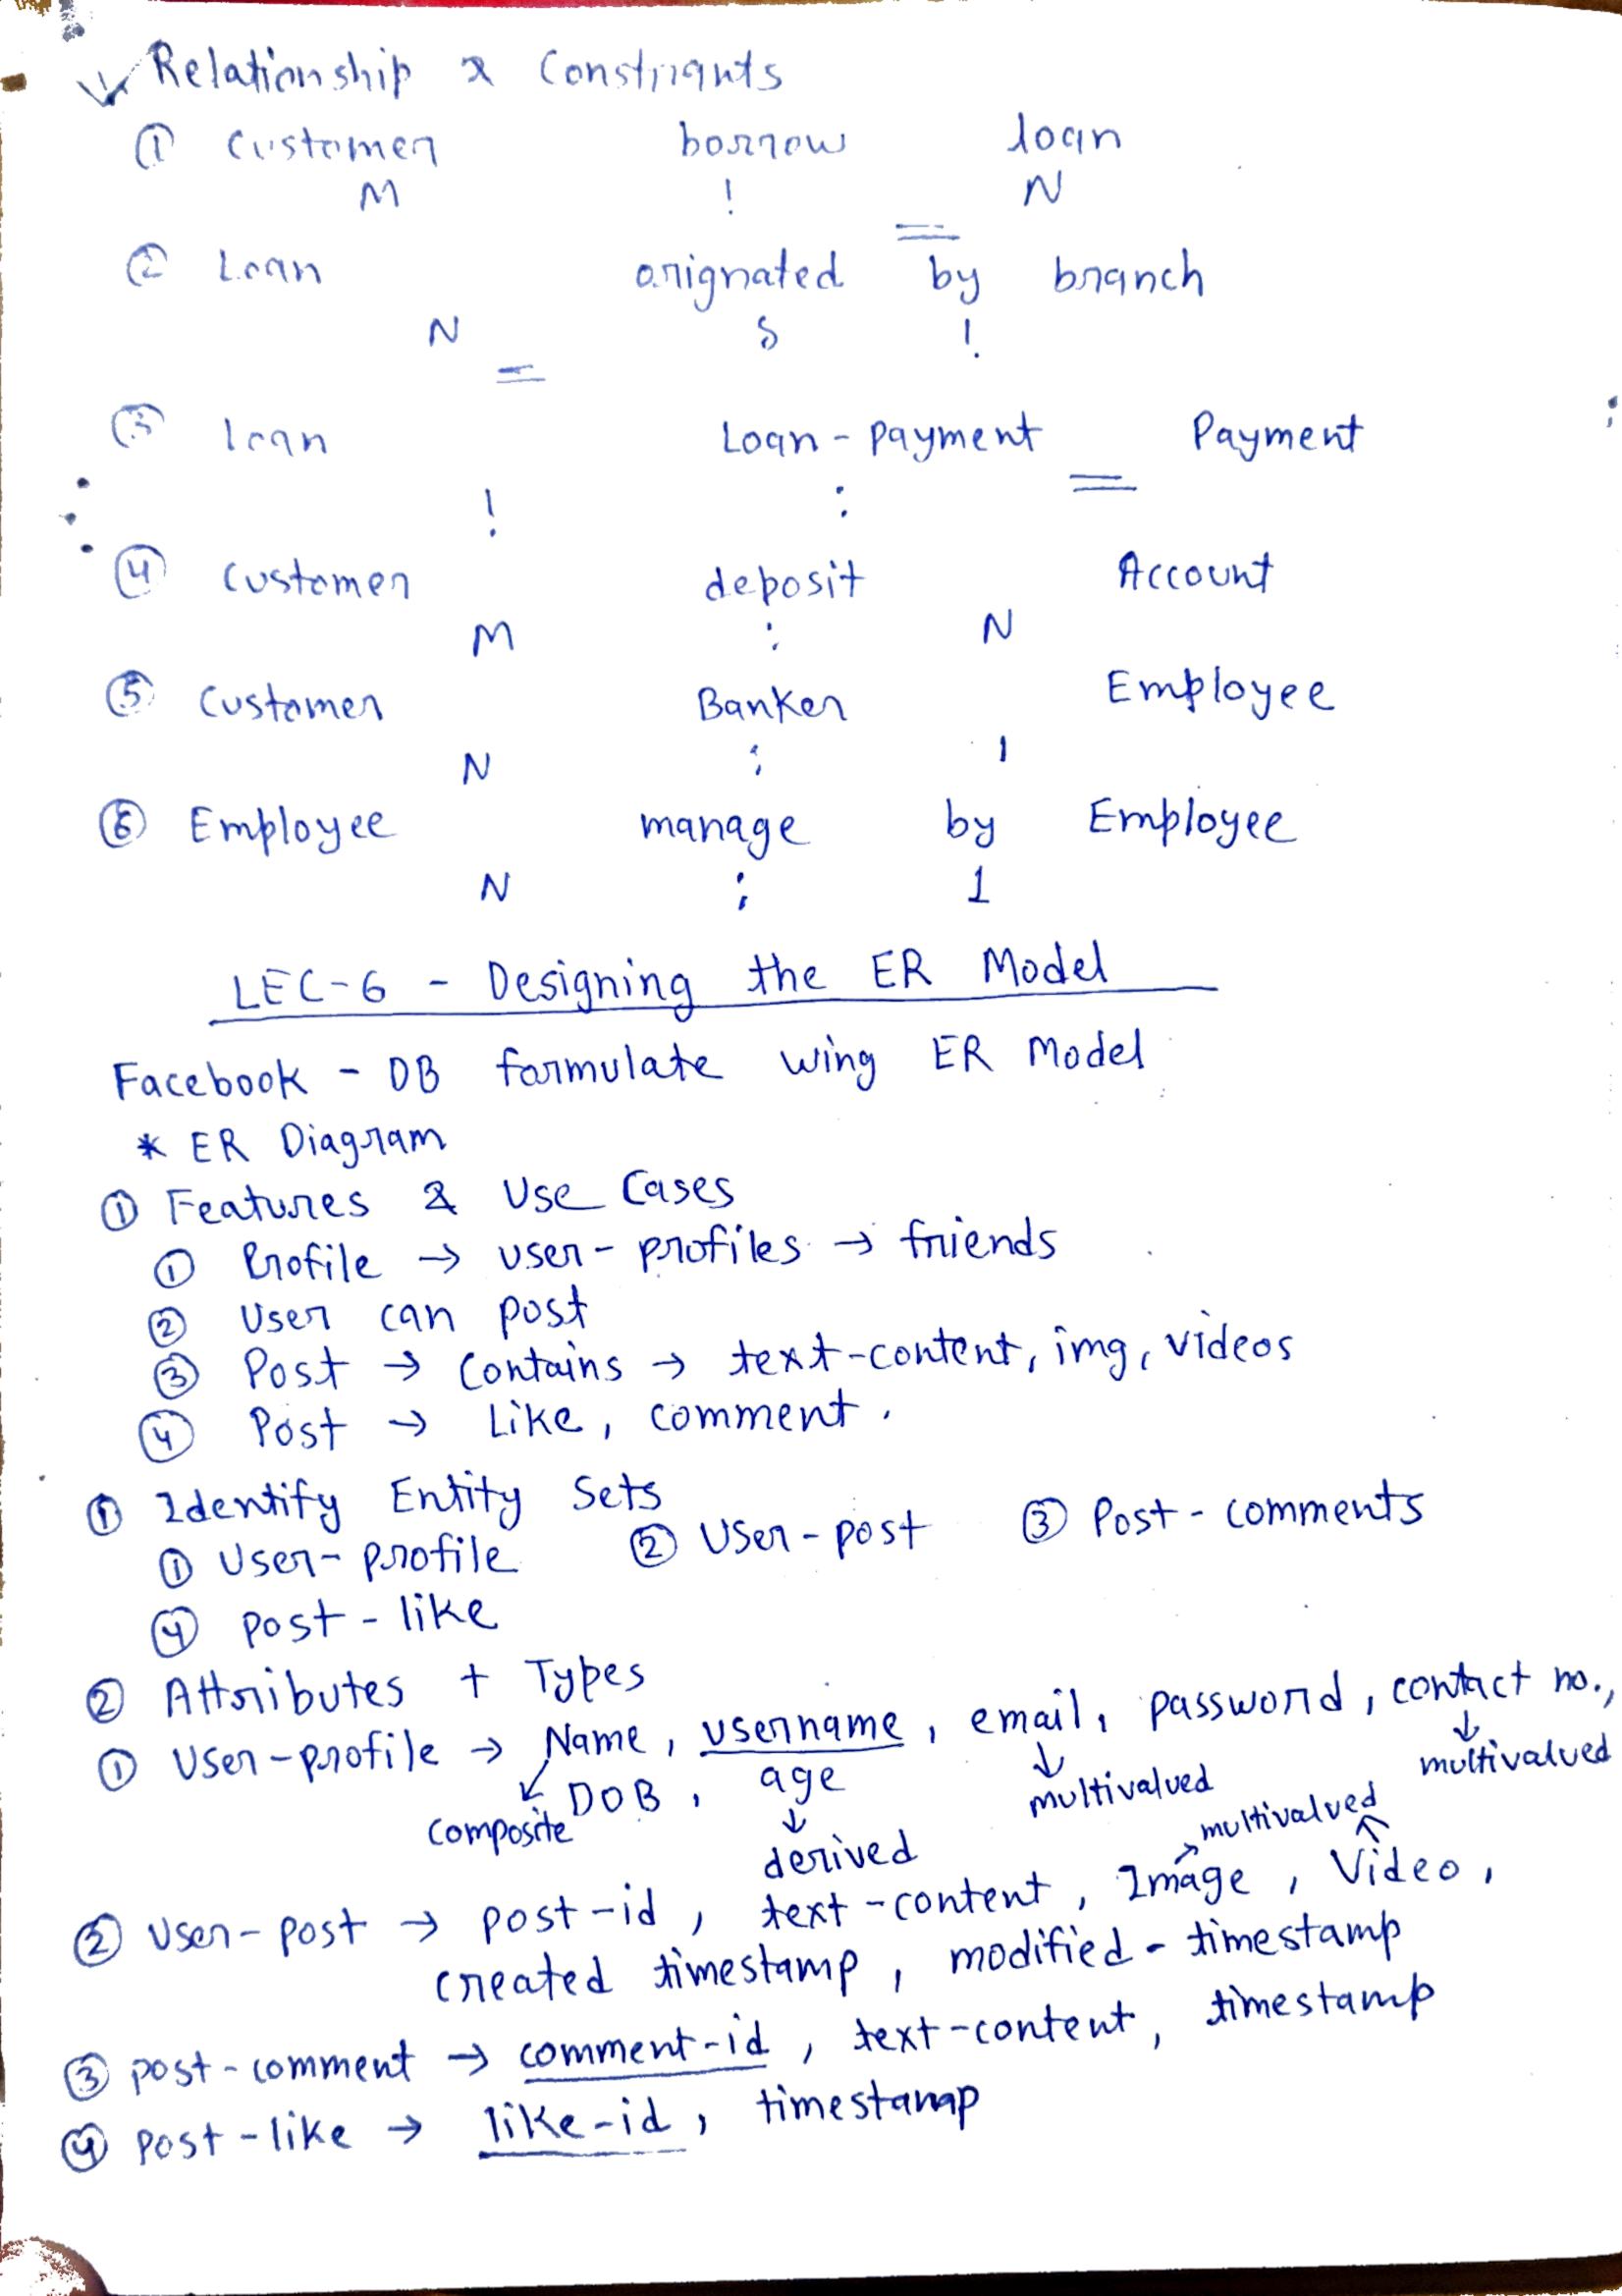 Relationship & Constriants
① Customer borrow loan
M : N
② Loan orignated by branch
N :
③ loan Loan-payment Payment
:
④ Customer deposit Account
M : N
⑤ Customer Banker Employee
N : 1
⑥ Employee manage by Employee
N : 1
LEC-6 - Designing the ER Model
Facebook - DB formulate using ER Model
* ER Diagram
① Features & Use Cases
① Profile → user-profiles → friends
② User can post
③ Post → Contains → text-content, img, videos
④ Post → Like, comment.
① Identify Entity Sets
① User-profile ② User-post ③ Post-comments
④ post-like
② Attributes + Types
① User-profile → Name, username, email, password, contact no.,
composite DOB, age multivalued multivalued
derived multivalued
② User-post → post-id, text-content, Image, Video,
created timestamp, modified-timestamp
③ post-comment → comment-id, text-content, timestamp
④ post-like → like-id, timestamp